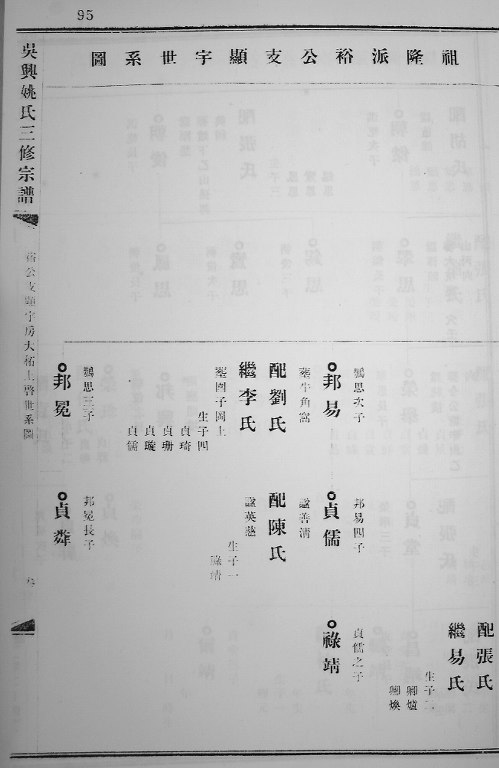 95
祖隆派裕公支顯宇世系圖
吳興姚氏三修宗譜
裕公支顯宇房大祐上啓世系圖
配張氏
繼易氏
生子二
卿爐
卿煥
邦易
鸚思次子
葬牛角窩
配劉氏
繼李氏
葬園子岡上
生子四
貞琦
貞珊
貞璇
貞儒
貞儒
邦易四子
諡善清
配陳氏
諡英慈
生子一
祿靖
祿靖
貞儒之子
邦冕
鸚思三子
貞粦
邦冕長子